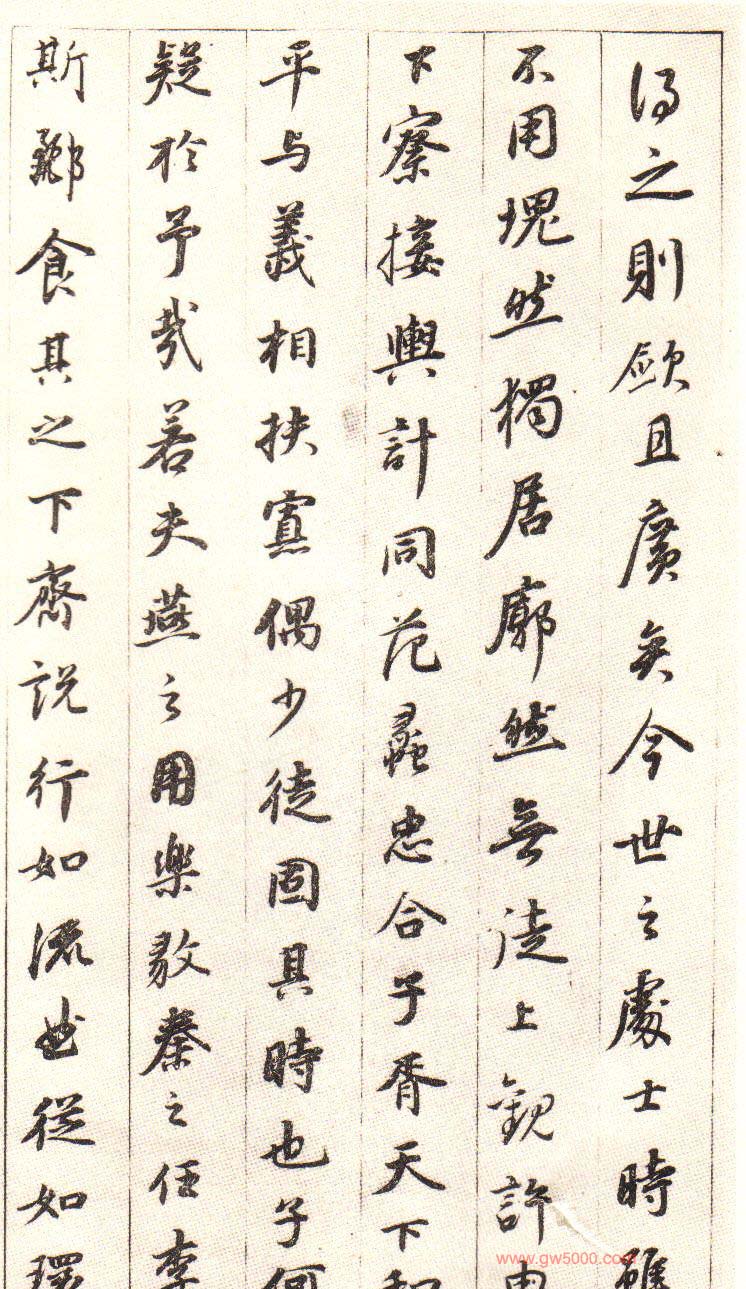 得之則敏且廣矣今世之處士時雖
不用塊然獨居廓然無徒上觀許由
下察接輿計同范蠡忠合子胥天下和
平与義相扶寡偶少徒固其時也子何
疑於予哉若夫燕之用樂毅秦之任李
斯酈食其之下齊說行如流曲從如環
www.gw5000.com